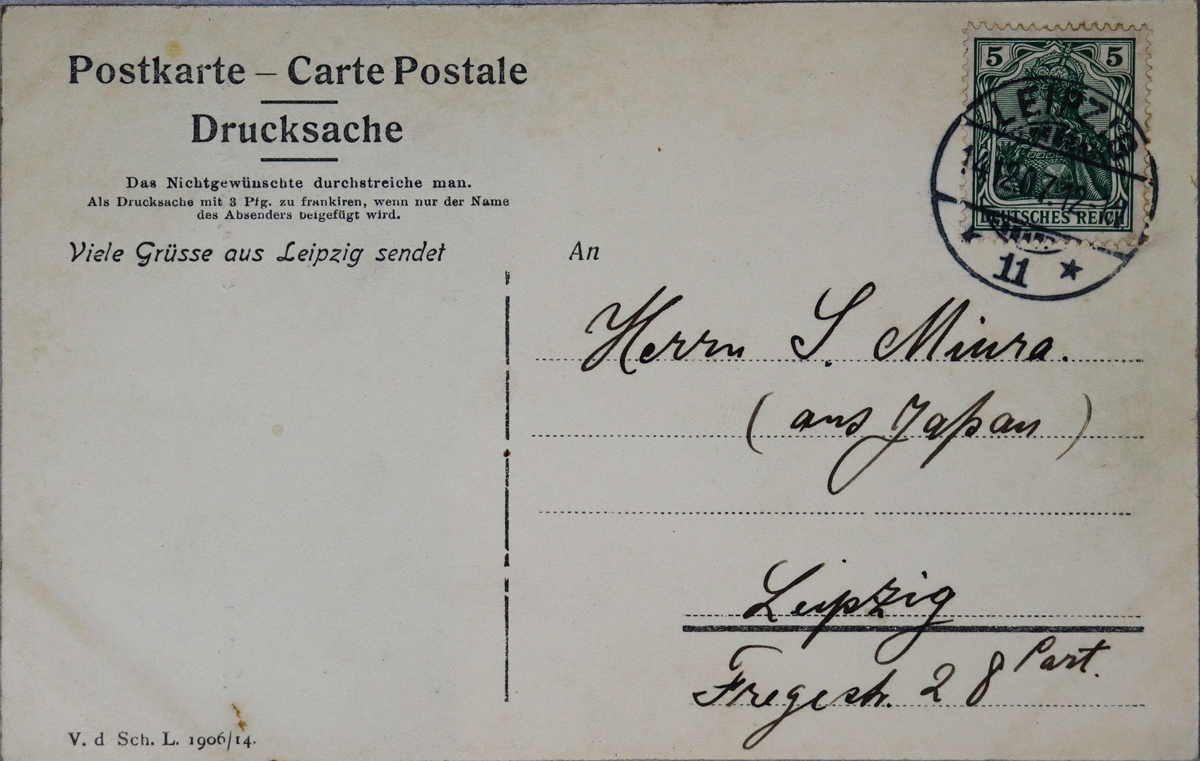 Postkarte – Carte Postale
Drucksache
Das Nichtgewünschte durchstreiche man.
Als Drucksache mit 3 Pfg. zu frankiren, wenn nur der Name
des Absenders beigefügt wird.
Viele Grüsse aus Leipzig sendet
5 5
LEIPZIG
DEUTSCHES REICH
11
An
Herrn S. Miura.
(aus Japan)
Leipzig
Fregestr. 28 Part.
V. d Sch. L. 1906/14.